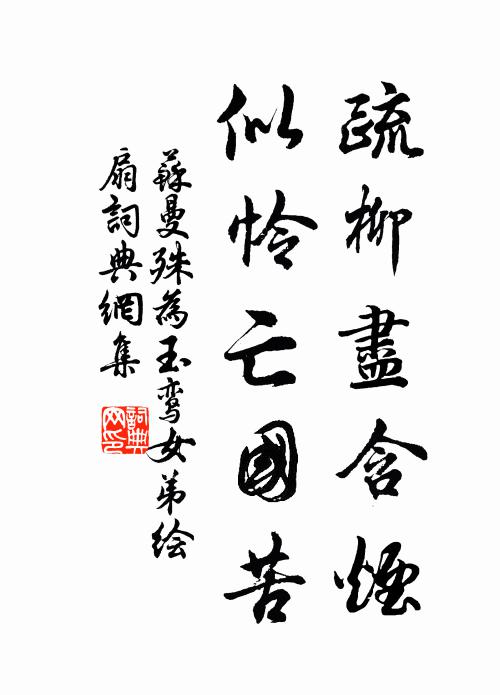 疏柳盡含煙
似怜亡國苦
蘇曼殊為玉鸾女弟绘
扇詞典網集
詞典
网印